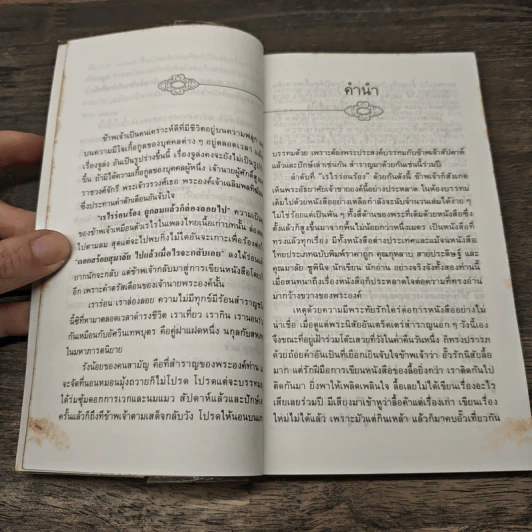 คำนำ
ข้าพเจ้าเป็นคนเคราะห์ดีที่มีชีวิตอยู่บนความผูก
บนความมีใจเกื้อกูลของบุคคลต่าง ๆ อยู่ตลอดเวลา
เรื่องจูลง อันเป็นรูปร่างขึ้นนี้ เรื่องจูลงคงจะยังไม่เป็นรูป
ขึ้น ถ้ามิได้ความเกื้อกูลของบุคคลผู้หนึ่ง เจ้านายผู้ศักดิ์
ราชวงศ์จักรี พระเจ้าวรวงศ์เธอ พระองค์เจ้าเฉลิมพลทิฆัม
ซึ่งประทานคำตัดเตือนอันจับใจ
"เรไรร่อนร้อง ถูกลมแล้วก็ล่องลอยไป" ความเป็น
ของข้าพเจ้าเหมือนตัวเรไรในเพลงไทยเนื้อเก่าบทนั้น
ไปตามลม สุดแต่จะไปพบกิ่งไม้ใดอันจะเกาะเพื่อร้อง
"ลอดสร้อยสุมาลัย ไปแล้วเมื่อไรจะกลับเอย" ลงได้ร่อน
ยากนักจะกลับ แต่ข้าพเจ้ากลับมาสู่การเขียนหนังสือโดย
อีก เพราะคำตรัสเตือนของเจ้านายพระองค์นี้
เราร่อน เราล่องลอย ความไม่มีทุกข์มีร้อนสำราญ
นี้ซิที่ตามาตลอดเวลาดำรงชีวิต เราเที่ยว เรากิน เรานอน
กันเหมือนกับอัศวินเทพบุตร คือคู่ฝาแฝดหนึ่ง นกุลกับสห
ในมหาภารตนิยาย
วังน้อยของคนสามัญ คือที่สำราญของพระองค์ท่าน
จะจัดที่นอนหมอนมุ้งถวายก็ไม่โปรด โปรดแต่จะบรรทม
ใต้ร่มซุ้มดอกการเวกและนมแมว สัปดาห์แล้วและปักษ์
ครั้นแล้วก็ถึงที่ข้าพเจ้าตามเสด็จกลับวัง โปรดให้นอนบน
บรรทมด้วย เพราะต้องพระประสงค์บรรทมกับข้าพเจ้าสัปดาห์
แล้วและปักษ์เล่าเช่นกัน สำราญมาด้วยกันเช่นนี้ร่วมปี
ลำดับที่ "เรไรร่อนร้อง" ด้วยกันดังนี้ ข้าพเจ้าก็สังเกต
เห็นพระอัธยาศัยเจ้าชายองค์นี้อย่างประหลาด ในห้องบรรทม
เต็มไปด้วยหนังสืออย่างเหลือกำลังจะนับจำนวนเล่มได้ง่าย ๆ
ไม่ใช่ร้อยแต่เป็นพัน ๆ ทั้งสี่ด้านของพระที่เต็มด้วยหนังสือซึ่ง
ตั้งแล้วก็สูงขึ้นมาจากพื้นไม่น้อยกว่าหนึ่งเมตร เป็นหนังสือที่
ทรงแล้วทุกเรื่อง มีทั้งหนังสือต่างประเทศและแม้จนหนังสือ
ไทยประเภทฉบับพิมพ์ราคาถูก คุณกุหลาบ สายประดิษฐ์ และ
คุณมาลัย ชูพินิจ นักเขียน นักอ่าน อย่างจริงจังทั้งสองท่านนี้
เมื่อสนทนาถึงเรื่องหนังสือก็ประหลาดใจต่อความที่ทรงอ่าน
มากกว้างขวางของพระองค์
เหตุด้วยความมีพระทัยรักใคร่ต่อการหนังสืออย่างไม่
น่าเชื่อ เมื่อดูแต่พระนิสัยอันเตร็ดเตร่สำราญนอก ๆ วังนี้เอง
จึงขณะที่อยู่เฝ้าร่วมโต๊ะเสวยที่วังในค่ำคืนวันหนึ่ง ก็ทรงปรารภ
ด้วยถ้อยคำอันเป็นที่เยือกเย็นจับใจข้าพเจ้าว่า อั๊วรักนิสัยลื้อ
มาก แต่รักฝีมือการเขียนหนังสือของลื้อยิ่งกว่า เราติดกันไป
ติดกันมา ยิ่งพาให้เพลิดเพลินใจ ลื้อเลยไม่ได้เขียนเรื่องอะไร
เสียเลยร่วมปี มีเสียงมาเข้าหูว่าลื้อค้าแต่เรื่องเก่า เขียนเรื่อง
ใหม่ไม่ได้แล้ว เพราะมัวแต่กินเหล้า แล้วก็มาคบอั๊วเที่ยวกัน